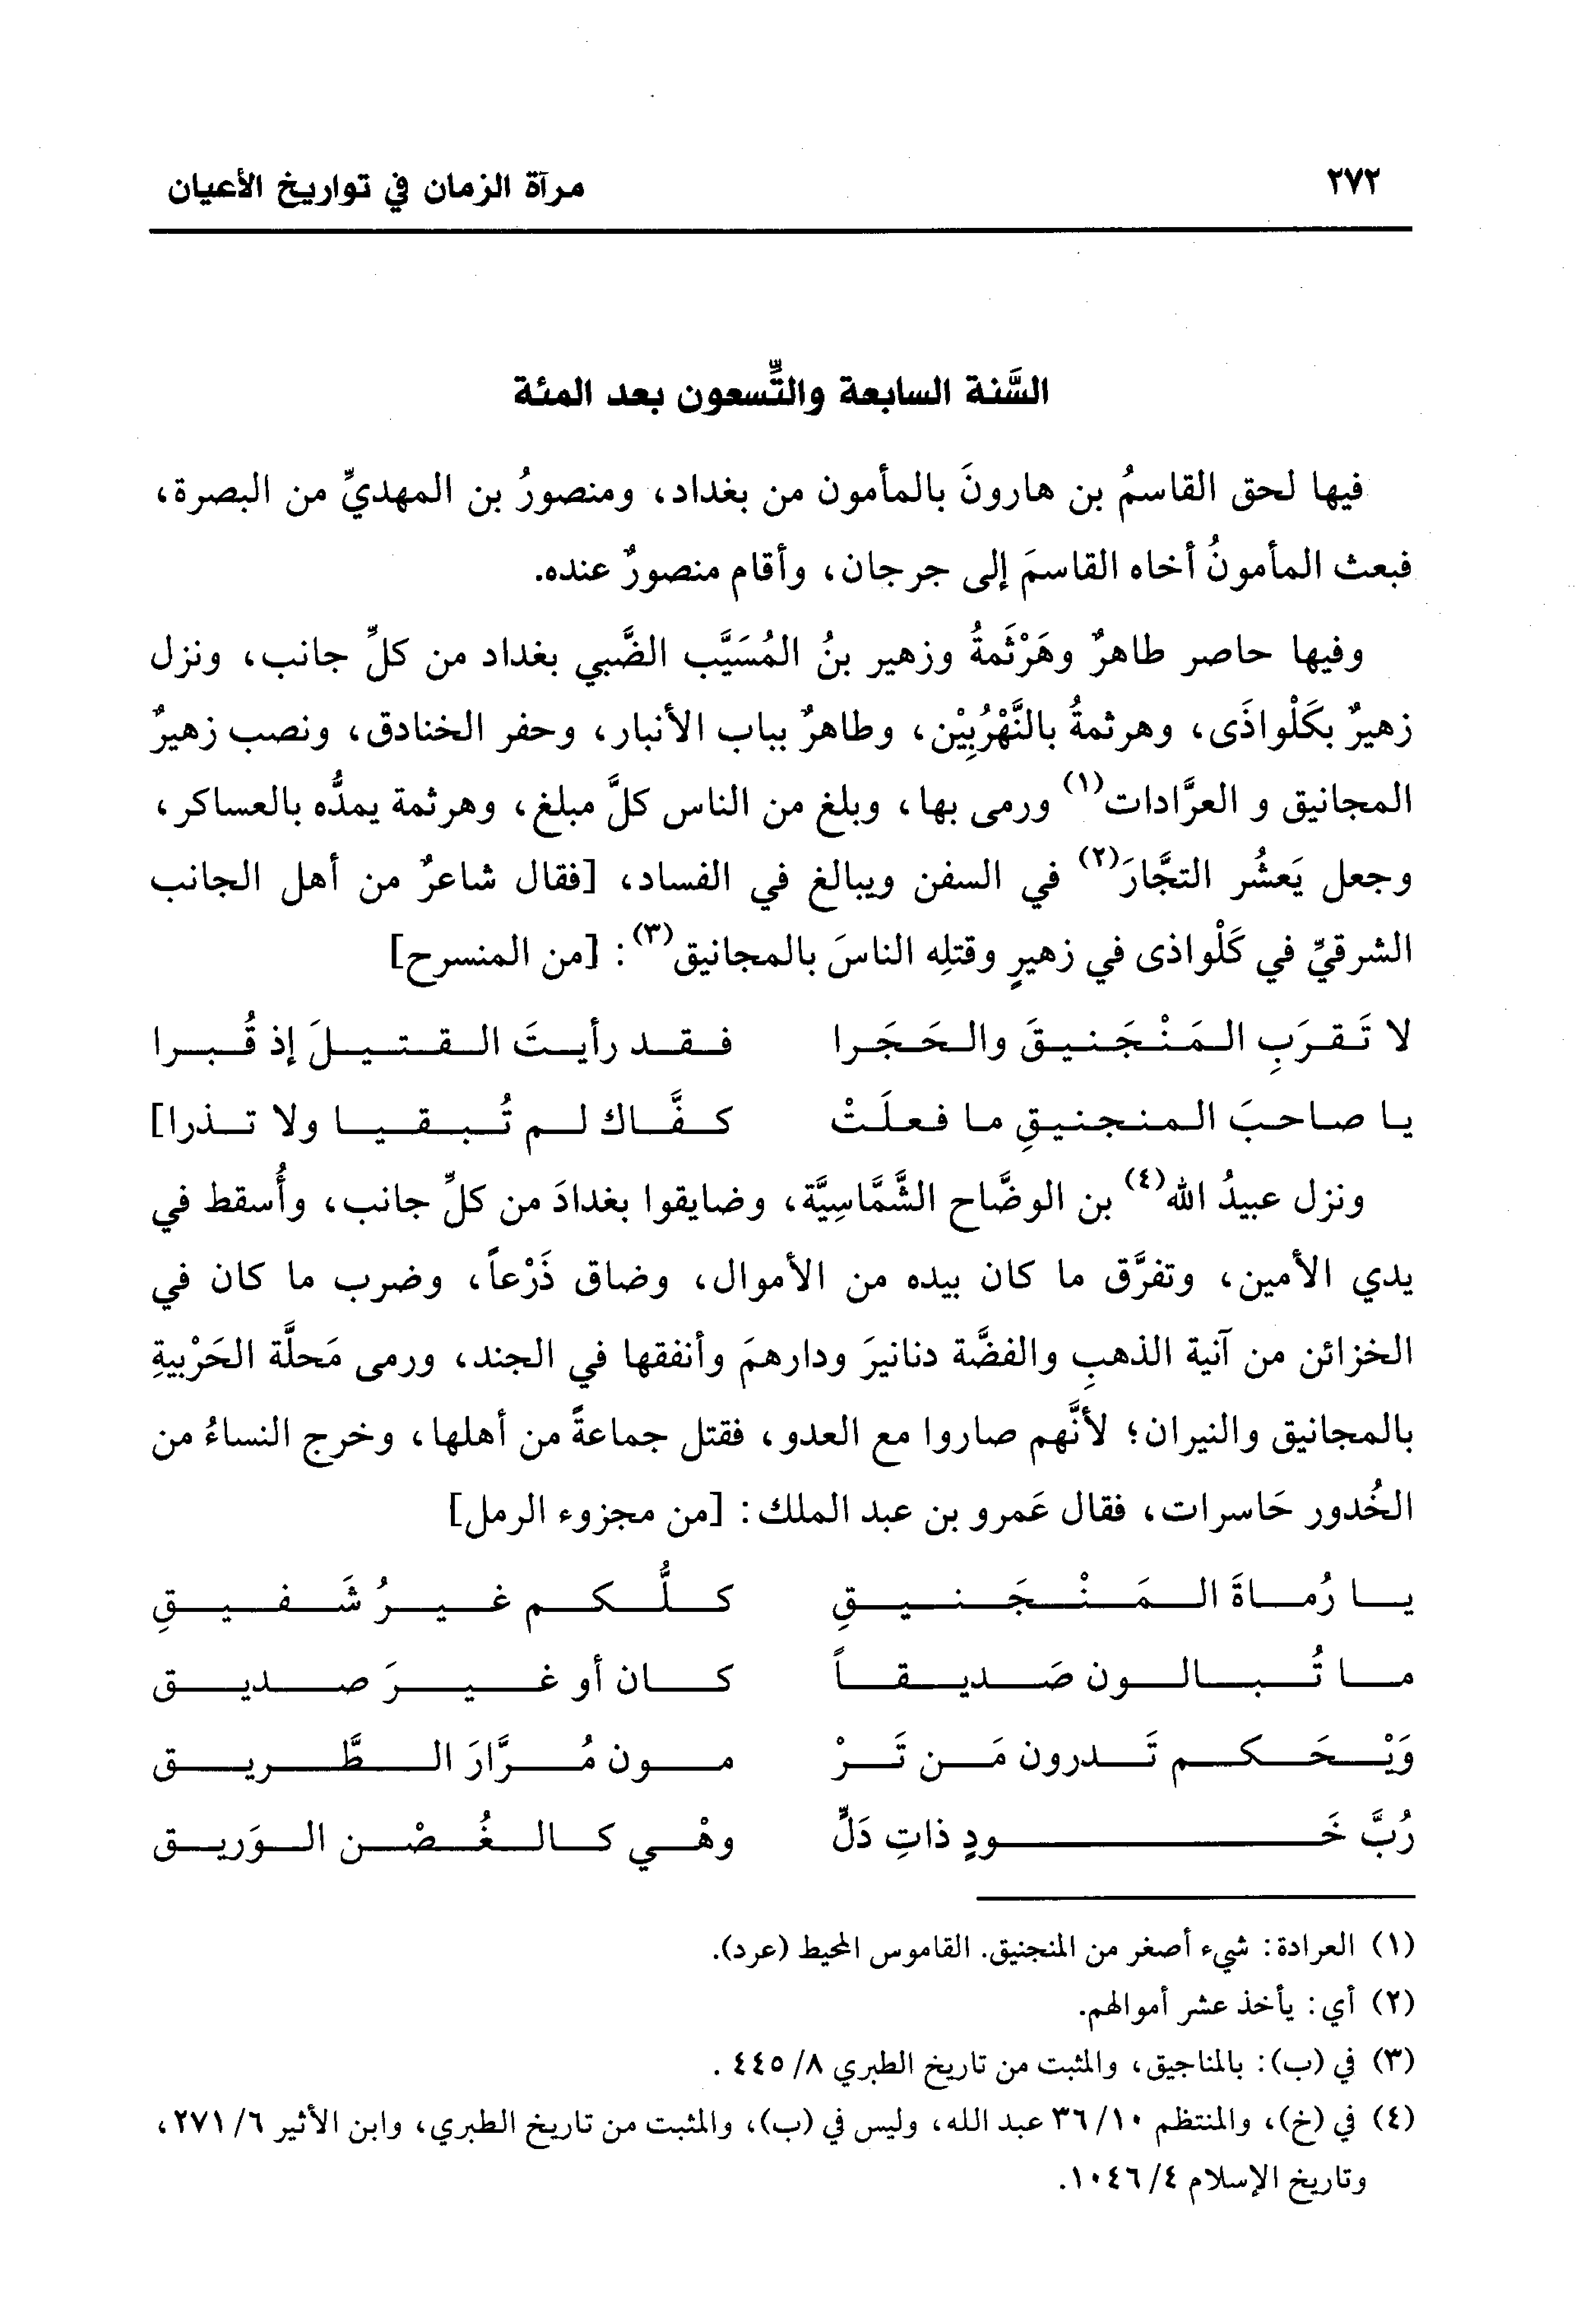 ٢٧٢
مرآة الزمان في تواريخ الأعيان
السَّنة السابعة والتِّسعون بعد المئة
فيها لحق القاسمُ بن هارونَ بالمأمون من بغداد، ومنصورُ بن المهديِّ من البصرة،
فبعث المأمونُ أخاه القاسمَ إلى جرجان، وأقام منصورٌ عنده.
وفيها حاصر طاهرٌ وهَرْثَمةُ وزهير بنُ المُسَيَّب الضَّبي بغداد من كلِّ جانب، ونزل
زهيرٌ بكَلْواذَى، وهرثمةُ بالنَّهْرُبِيْن، وطاهرٌ بباب الأنبار، وحفر الخنادق، ونصب زهيرٌ
المجانيق و العرَّادات(١) ورمى بها، وبلغ من الناس كلَّ مبلغ، وهرثمة يمدُّه بالعساكر،
وجعل يَعشُر التجَّارَ(٢) في السفن ويبالغ في الفساد، [فقال شاعرٌ من أهل الجانب
الشرقيِّ في كَلْواذى في زهيرٍ وقتلِه الناسَ بالمجانيق(٣): [من المنسرح]
لا تَقرَبِ المَنْجَنيقَ والحَجَرا فقد رأيتَ القتيلَ إذ قُبرا
يا صاحبَ المنجنيقِ ما فعلَتْ كفَّاك لم تُبقيا ولا تذرا]
ونزل عبيدُ الله(٤) بن الوضَّاح الشَّمَّاسِيَّة، وضايقوا بغدادَ من كلِّ جانب، وأُسقط في
يدي الأمين، وتفرَّق ما كان بيده من الأموال، وضاق ذَرْعاً، وضرب ما كان في
الخزائن من آنية الذهبِ والفضَّة دنانيرَ ودارهمَ وأنفقها في الجند، ورمى مَحلَّة الحَرْبيةِ
بالمجانيق والنيران؛ لأنَّهم صاروا مع العدو، فقتل جماعةً من أهلها، وخرج النساءُ من
الخُدور حَاسرات، فقال عَمرو بن عبد الملك: [من مجزوء الرمل]
يا رُماةَ المَنْجَنيقِ كلُّكم غيرُ شَفيقِ
ما تُبالون صَديقاً كان أو غيرَ صديق
وَيْحَكم تَدرون مَن تَرْ مون مُرَّارَ الطَّريق
رُبَّ خَودٍ ذاتِ دَلٍّ وهْي كالغُصْن الوَريق
(١) العرادة: شيء أصغر من المنجنيق. القاموس المحيط (عرد).
(٢) أي: يأخذ عشر أموالهم.
(٣) في (ب): بالمناجيق، والمثبت من تاريخ الطبري ٨/ ٤٤٥ .
(٤) في (خ)، والمنتظم ١٠/ ٣٦ عبد الله، وليس في (ب)، والمثبت من تاريخ الطبري، وابن الأثير ٦/ ٢٧١،
وتاريخ الإسلام ٤/ ١٠٤٦.